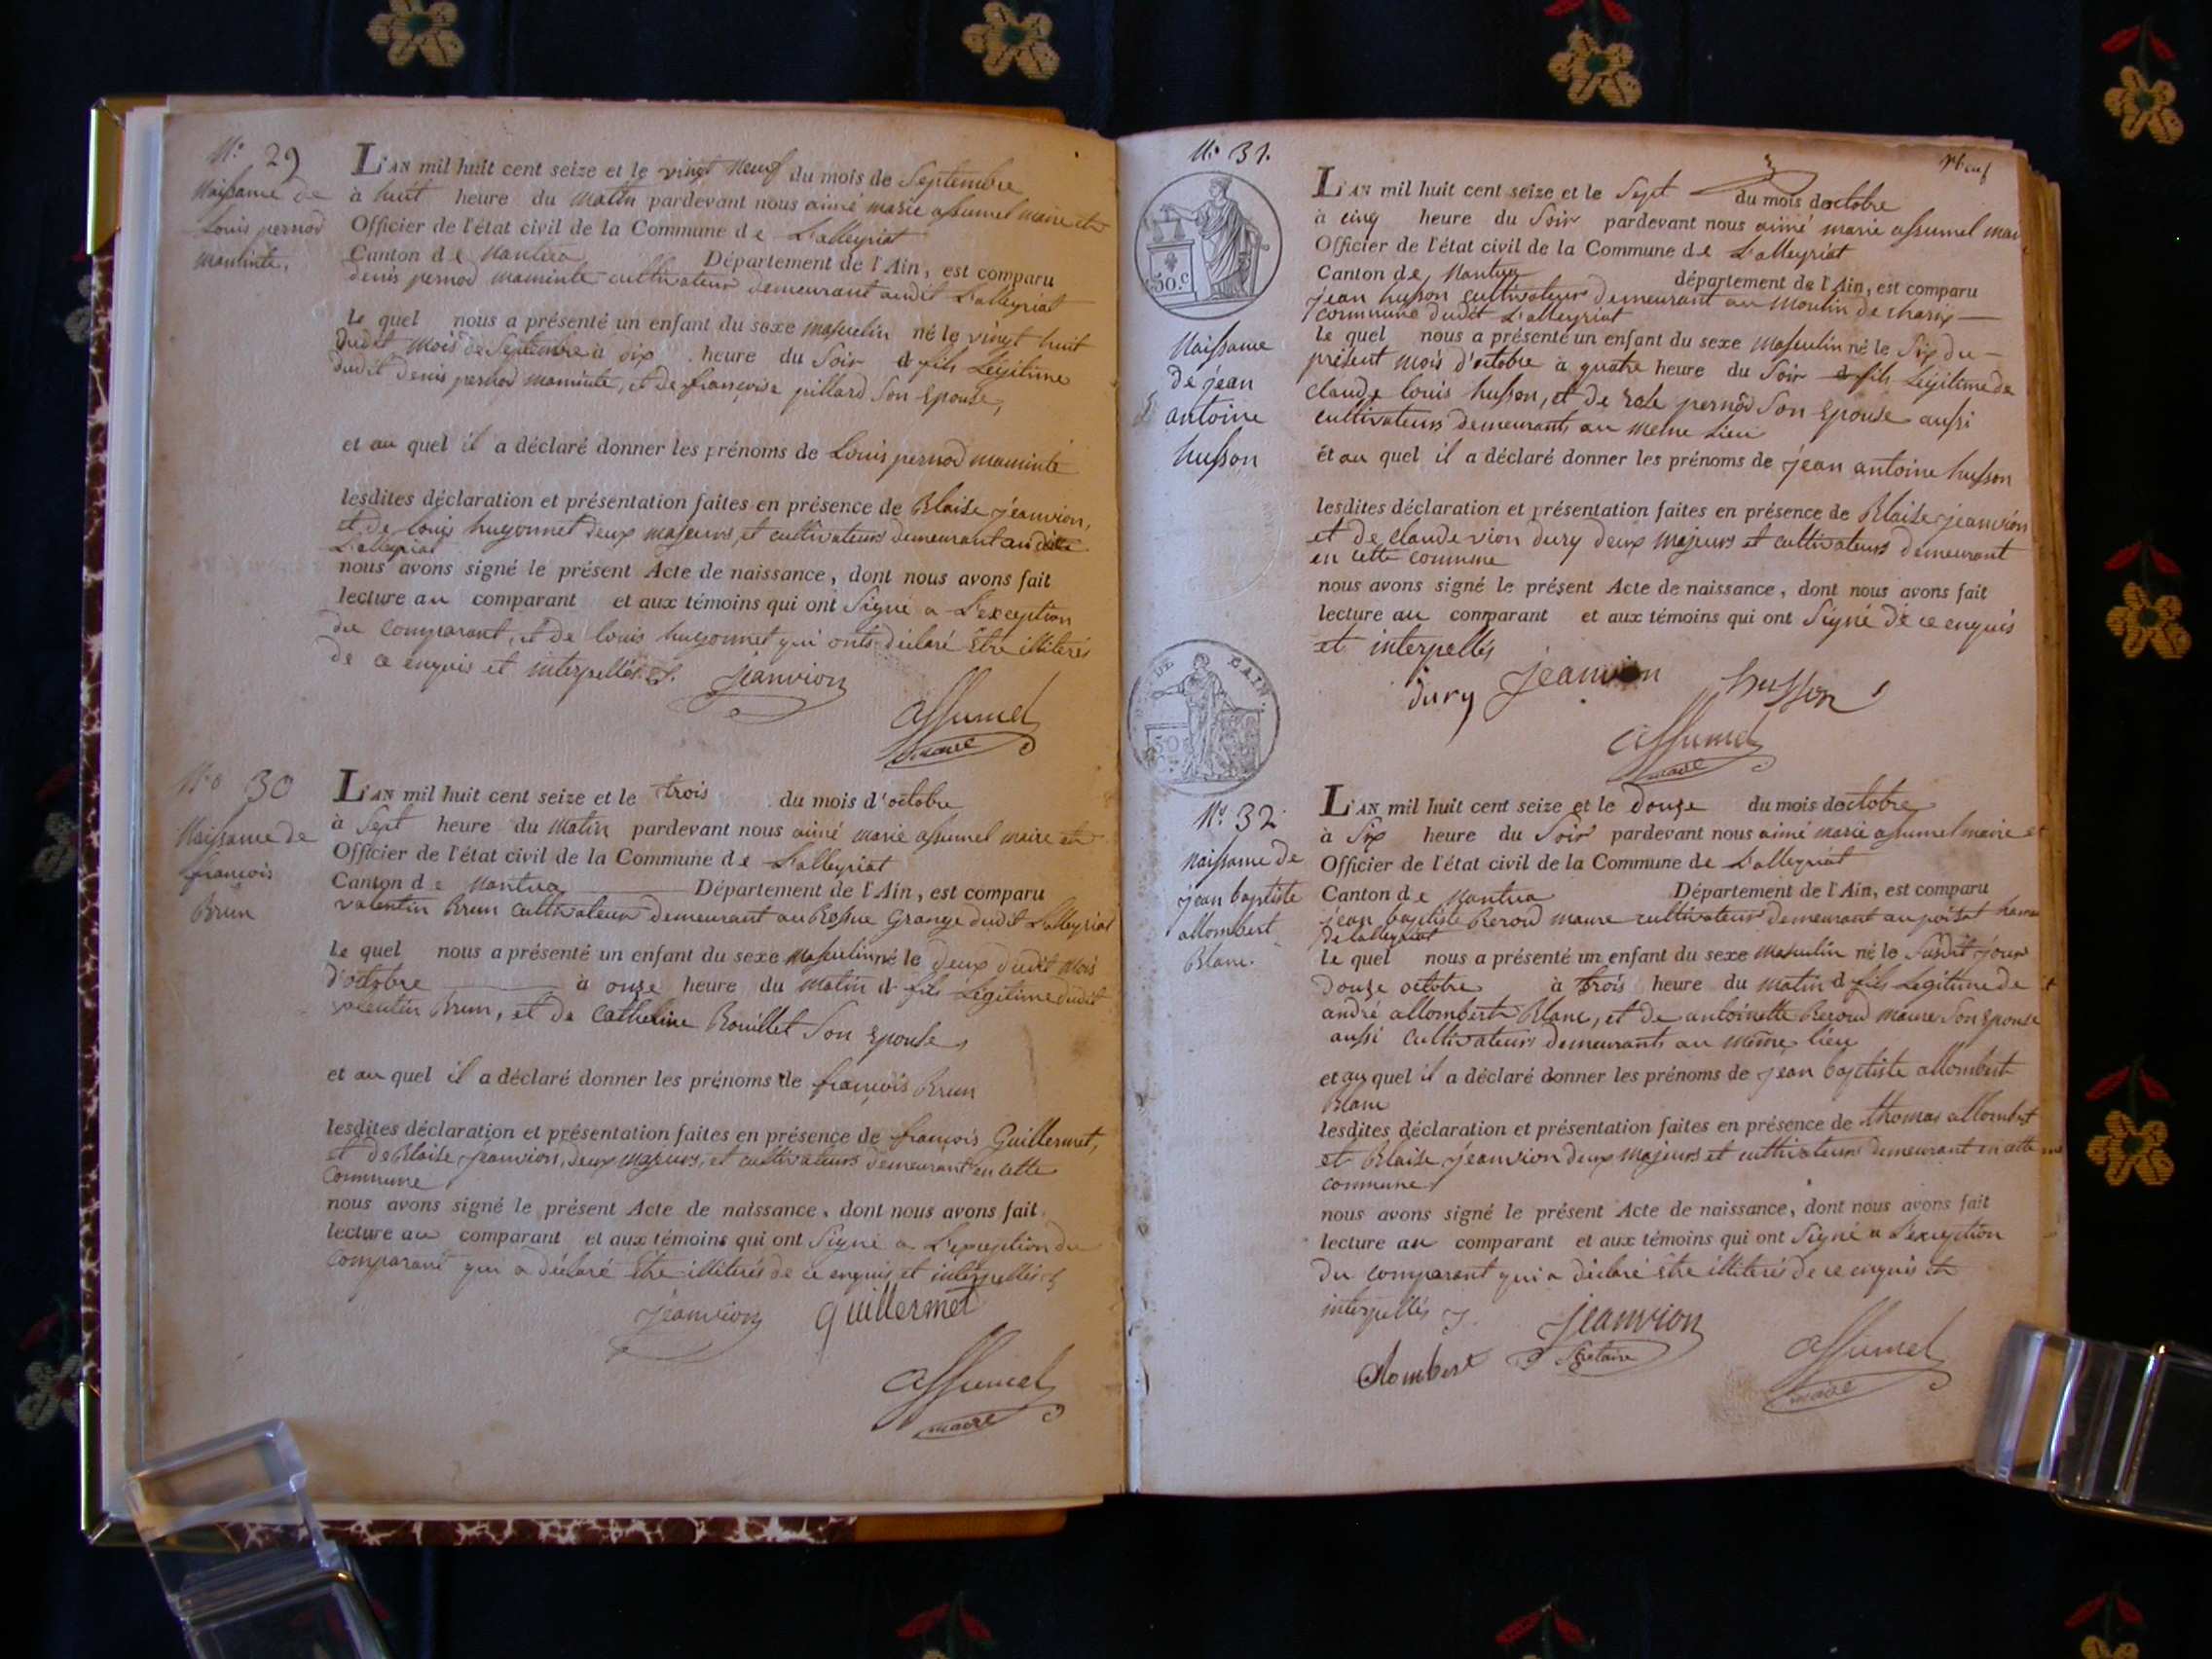 N.º 29
Naissance de
Louis pernod
maminte,
L'AN mil huit cent seize et le vingt neuf du mois de Septembre
à huit heure du matin pardevant nous aimé marie assumel maire et
Officier de l'état civil de la Commune de Lalleyriat
Canton de Nantua Département de l'Ain, est comparu
denis pernod maminte cultivateur demeurant audit Lalleyriat
Le quel nous a présenté un enfant du sexe masculin né le vingt huit
dudit mois de Septembre à dix heure du Soir d fils Légitime
dudit denis pernod maminte, et de françoise pillard Son Epouse,
et au quel il a déclaré donner les prénoms de Louis pernod maminte
lesdites déclaration et présentation faites en présence de Blaise jéanvion,
et de louis hugonnet deux majeurs, et cultivateurs demeurant audit
Lalleyriat
nous avons signé le présent Acte de naissance, dont nous avons fait
lecture au comparant et aux témoins qui ont Signé a L'exception
du comparant, et de louis hugonnet qui onts déclaré Etre illiterés
de ce enquis et interpellés.
jeanvion
assumel
maire
N.o 30
Naissance de
françois
Brun
L'AN mil huit cent seize et le trois du mois d'octobre
à Sept heure du matin pardevant nous aimé marie assumel maire et
Officier de l'état civil de la Commune de Lalleyriat
Canton de Nantua Département de l'Ain, est comparu
valentin Brun cultivateur demeurant au Grange dudit Lalleyriat
Le quel nous a présenté un enfant du sexe masculin né le deux dudit mois
d'octobre à onze heure du matin d fils Légitime dudit
valentin Brun, et de Catherine Rouillet Son Epouse,
et au quel il a déclaré donner les prénoms de françois Brun
lesdites déclaration et présentation faites en présence de françois Guillermet,
et de Blaise jeanvion, deux majeurs, et cultivateurs demeurant en cette
Commune
nous avons signé le présent Acte de naissance, dont nous avons fait
lecture au comparant et aux témoins qui ont Signé a L'exception du
comparant qui a déclaré Etre illiterés de ce enquis et interpellés
jeanvion guillermet
assumel
maire
N.º 31.
50.c
Naissance
de jean
antoine
husson
L'AN mil huit cent seize et le Sept du mois doctobre
à cinq heure du Soir pardevant nous aimé marie assumel mai
Officier de l'état civil de la Commune de Lalleyriat
Canton de Nantua département de l'Ain, est comparu
jean husson cultivateur demeurant au moulin de charix
commune dudit Lalleyriat
Le quel nous a présenté un enfant du sexe masculin né le Six du
présent mois d'octobre à quatre heure du Soir d fils Légitime de
claude louis husson, et de rose pernod Son Epouse aussi
cultivateurs demeurants au meme Lieu
et au quel il a déclaré donner les prénoms de jean antoine husson
lesdites déclaration et présentation faites en présence de Blaise jeanvion
et de claude vion dury deux majeurs et cultivateurs demeurant
en cette commune
nous avons signé le présent Acte de naissance, dont nous avons fait
lecture au comparant et aux témoins qui ont Signé de ce enquis
et interpellés
dury jeanvion husson
assumel
maire
DE L'AIN.
50
N.º 32
Naissance de
jean baptiste
allombert
Blanc.
L'AN mil huit cent seize et le douze du mois doctobre
à Six heure du Soir pardevant nous aimé marie assumel maire et
Officier de l'état civil de la Commune de Lalleyriat
Canton de Nantua Département de l'Ain, est comparu
jean baptiste Beroud maure cultivateur demeurant au poizat hameau
de Lalleyriat
Le quel nous a présenté un enfant du sexe masculin né le Susdit jour
douze octobre à trois heure du matin d fils Légitime de
andré allombert Blanc, et de antoinette Beroud maure Son Epouse
aussi cultivateurs demeurants au même lieu
et au quel il a déclaré donner les prénoms de jean baptiste allombert
Blanc
lesdites déclaration et présentation faites en présence de thomas allombert
et Blaise jeanvion deux majeurs et cultivateurs demeurant en cette
commune
nous avons signé le présent Acte de naissance, dont nous avons fait
lecture au comparant et aux témoins qui ont Signé a L'exception
du comparant qui a déclaré Etre illiterés de ce enquis et
interpellés
allombert jeanvion
Secretaire
assumel
maire